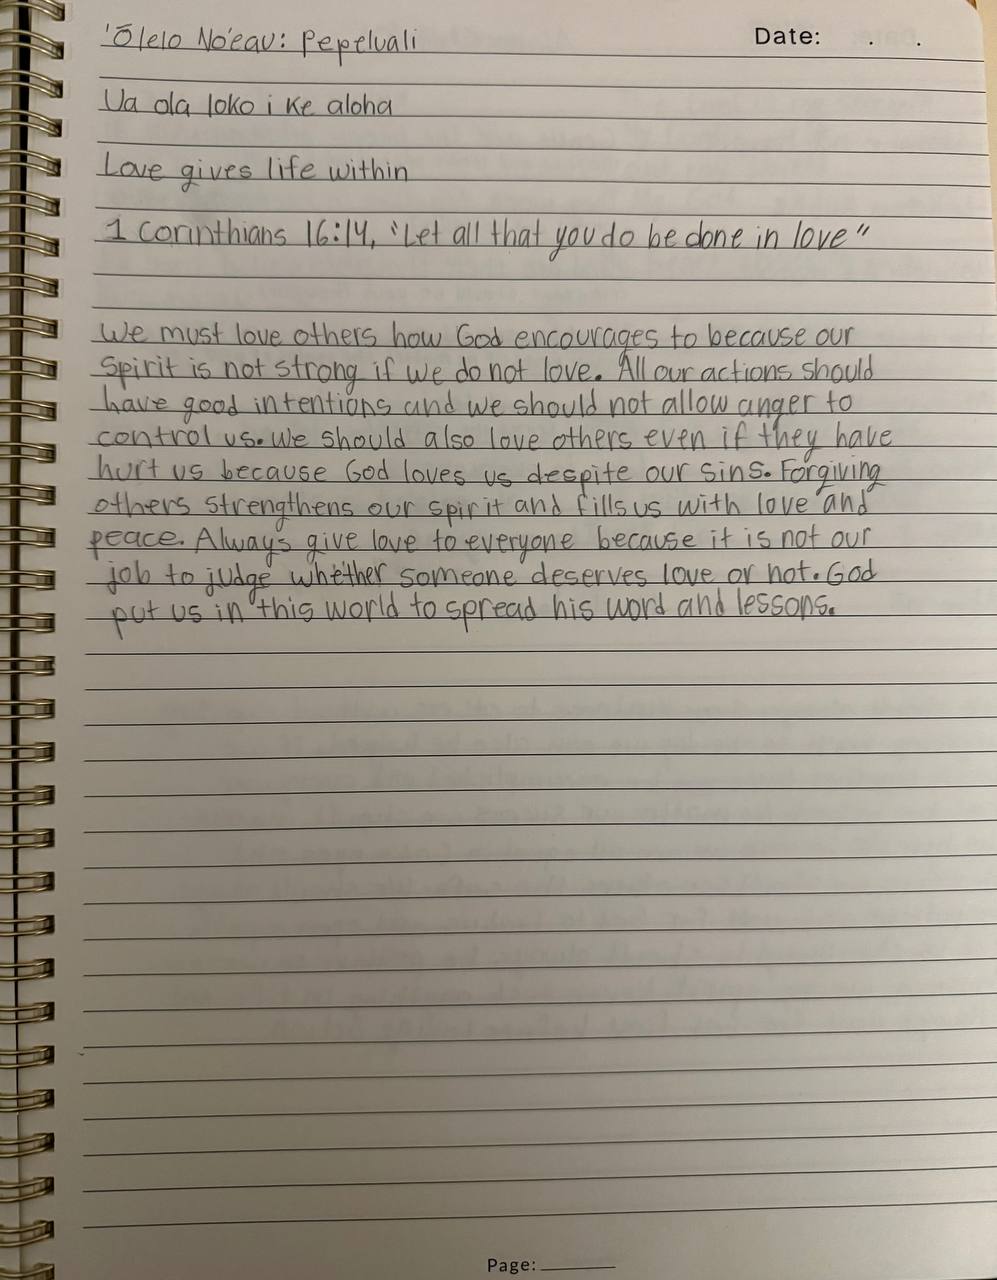 'Ōlelo No'eau: Pepeluali
Date: . .
Ua ola loko i ke aloha
Love gives life within
1 Corinthians 16:14, "Let all that you do be done in love"
We must love others how God encourages to because our
spirit is not strong if we do not love. All our actions should
have good intentions and we should not allow anger to
control us. We should also love others even if they have
hurt us because God loves us despite our sins. Forgiving
others strengthens our spirit and fills us with love and
peace. Always give love to everyone because it is not our
job to judge whether someone deserves love or not. God
put us in this world to spread his word and lessons.
Page: